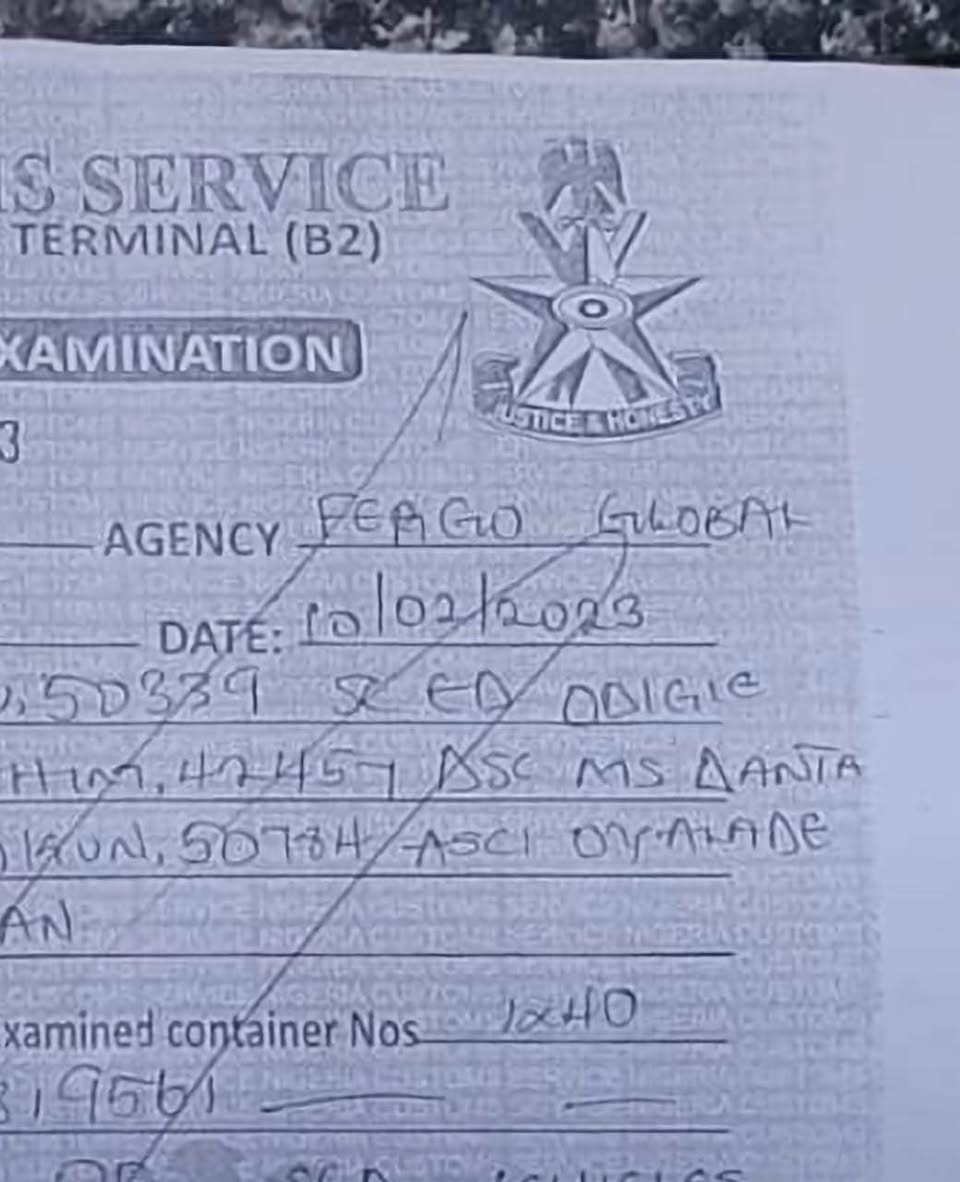 S SERVICE
TERMINAL (B2)
XAMINATION
JUSTICE & HONESTY
3
AGENCY FERGO GLOBAL
DATE: 10/02/2023
50339 SC ED ODIGIE
42457 ASC MS DANTA
50784 ASCI OYALADE
AN
xamined container Nos 1x40
19561